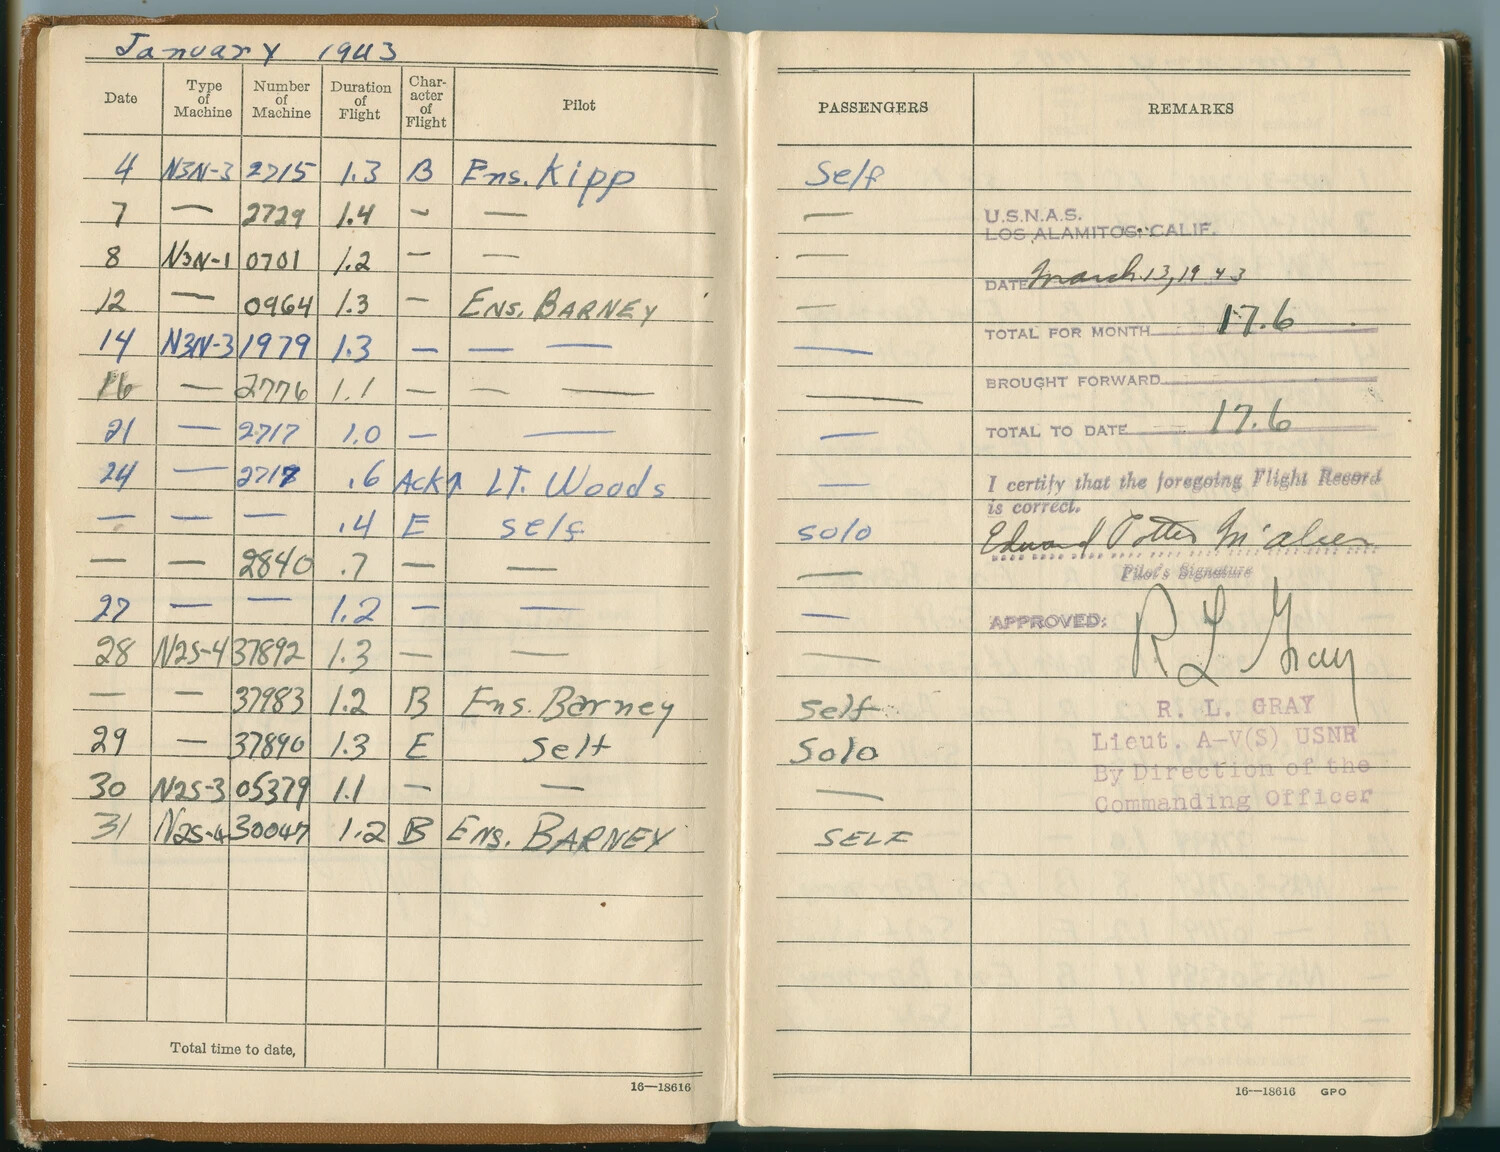 January 1943
Date Type of Machine Number of Machine Duration of Flight Char-acter of Flight Pilot PASSENGERS REMARKS
4 N3N-3 2715 1.3 B Ens. Kipp Self
7 — 2729 1.4 — — —
8 N3N-1 0701 1.2 — — —
12 — 0964 1.3 — ENS. BARNEY —
14 N3N-3 1979 1.3 — — — —
16 — 2776 1.1 — — — —
21 — 2717 1.0 — — —
24 — 2717 .6 Ack↑ LT. Woods —
— — — .4 E self solo
— — 2840 .7 — — —
27 — — 1.2 — — —
28 N2S-4 37892 1.3 — — —
— — 37983 1.2 B Ens. Barney Self
29 — 37890 1.3 E Self Solo
30 N2S-3 05379 1.1 — — —
31 N2S-4 30047 1.2 B ENS. BARNEY SELF
Total time to date,
16—18616
U.S.N.A.S.
LOS ALAMITOS, CALIF.
DATE March 13, 1943
TOTAL FOR MONTH 17.6
BROUGHT FORWARD
TOTAL TO DATE 17.6
I certify that the foregoing Flight Record
is correct.
Edward Potter
Pilot's Signature
APPROVED:
R L Gray
R. L. GRAY
Lieut. A-V(S) USNR
By Direction of the
Commanding Officer
16—18616 GPO